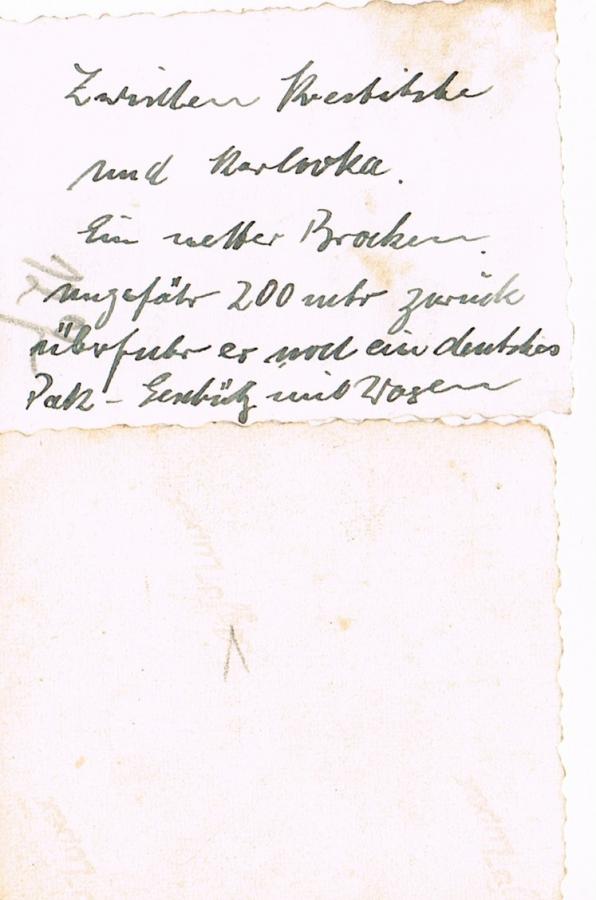 Zwischen Krestitshe
und Karlovka.
Ein netter Brocken.
ungefähr 200 mtr zurück
überfuhr er noch ein deutsches
Pak - Geschütz mit Wagen